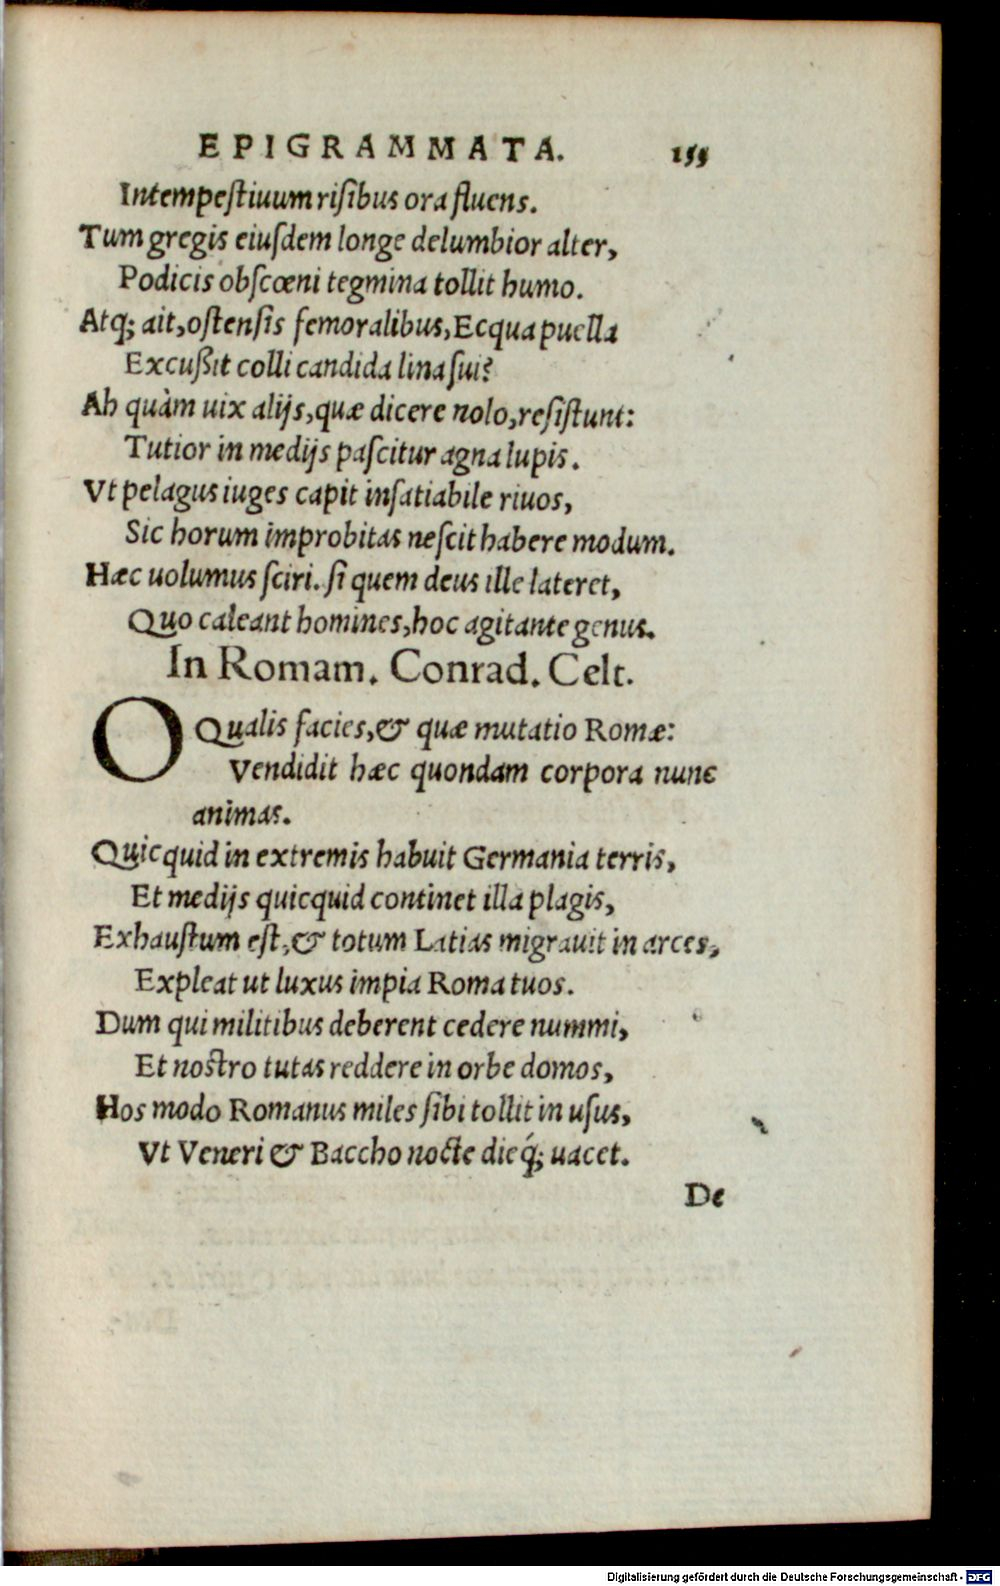 EPIGRAMMATA. 155
Intempeſtiuum riſibus ora fluens.
Tum gregis eiuſdem longe delumbior alter,
Podicis obſcœni tegmina tollit humo.
Atq; ait, oſtenſis femoralibus, Ecqua puella
Excußit colli candida lina ſui?
Ah quàm uix alijs, quæ dicere nolo, reſiſtunt:
Tutior in medijs paſcitur agna lupis.
Vt pelagus iuges capit inſatiabile riuos,
Sic horum improbitas neſcit habere modum.
Hæc uolumus ſciri. ſi quem deus ille lateret,
Quo caleant homines, hoc agitante genus.
In Romam. Conrad. Celt.
O Qualis facies, & quæ mutatio Romæ:
Vendidit hæc quondam corpora nunc
animas.
Quicquid in extremis habuit Germania terris,
Et medijs quicquid continet illa plagis,
Exhauſtum eſt, & totum Latias migrauit in arces,
Expleat ut luxus impia Roma tuos.
Dum qui militibus deberent cedere nummi,
Et noſtro tutas reddere in orbe domos,
Hos modo Romanus miles ſibi tollit in uſus,
Vt Veneri & Baccho nocte dieq́; uacet.
De
Digitalisierung gefördert durch die Deutsche Forschungsgemeinschaft - DFG